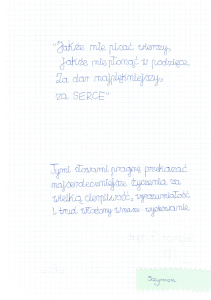 "Jakże nie pisać wierszy,
Jakże nie płonąć w podzięce
Za dar najpiękniejszy,
za SERCE"
Tymi słowami pragnę przekazać
najserdeczniejsze życzenia za
wielką cierpliwość, wyrozumiałość
i trud włożony w nasze wychowanie
Szymon